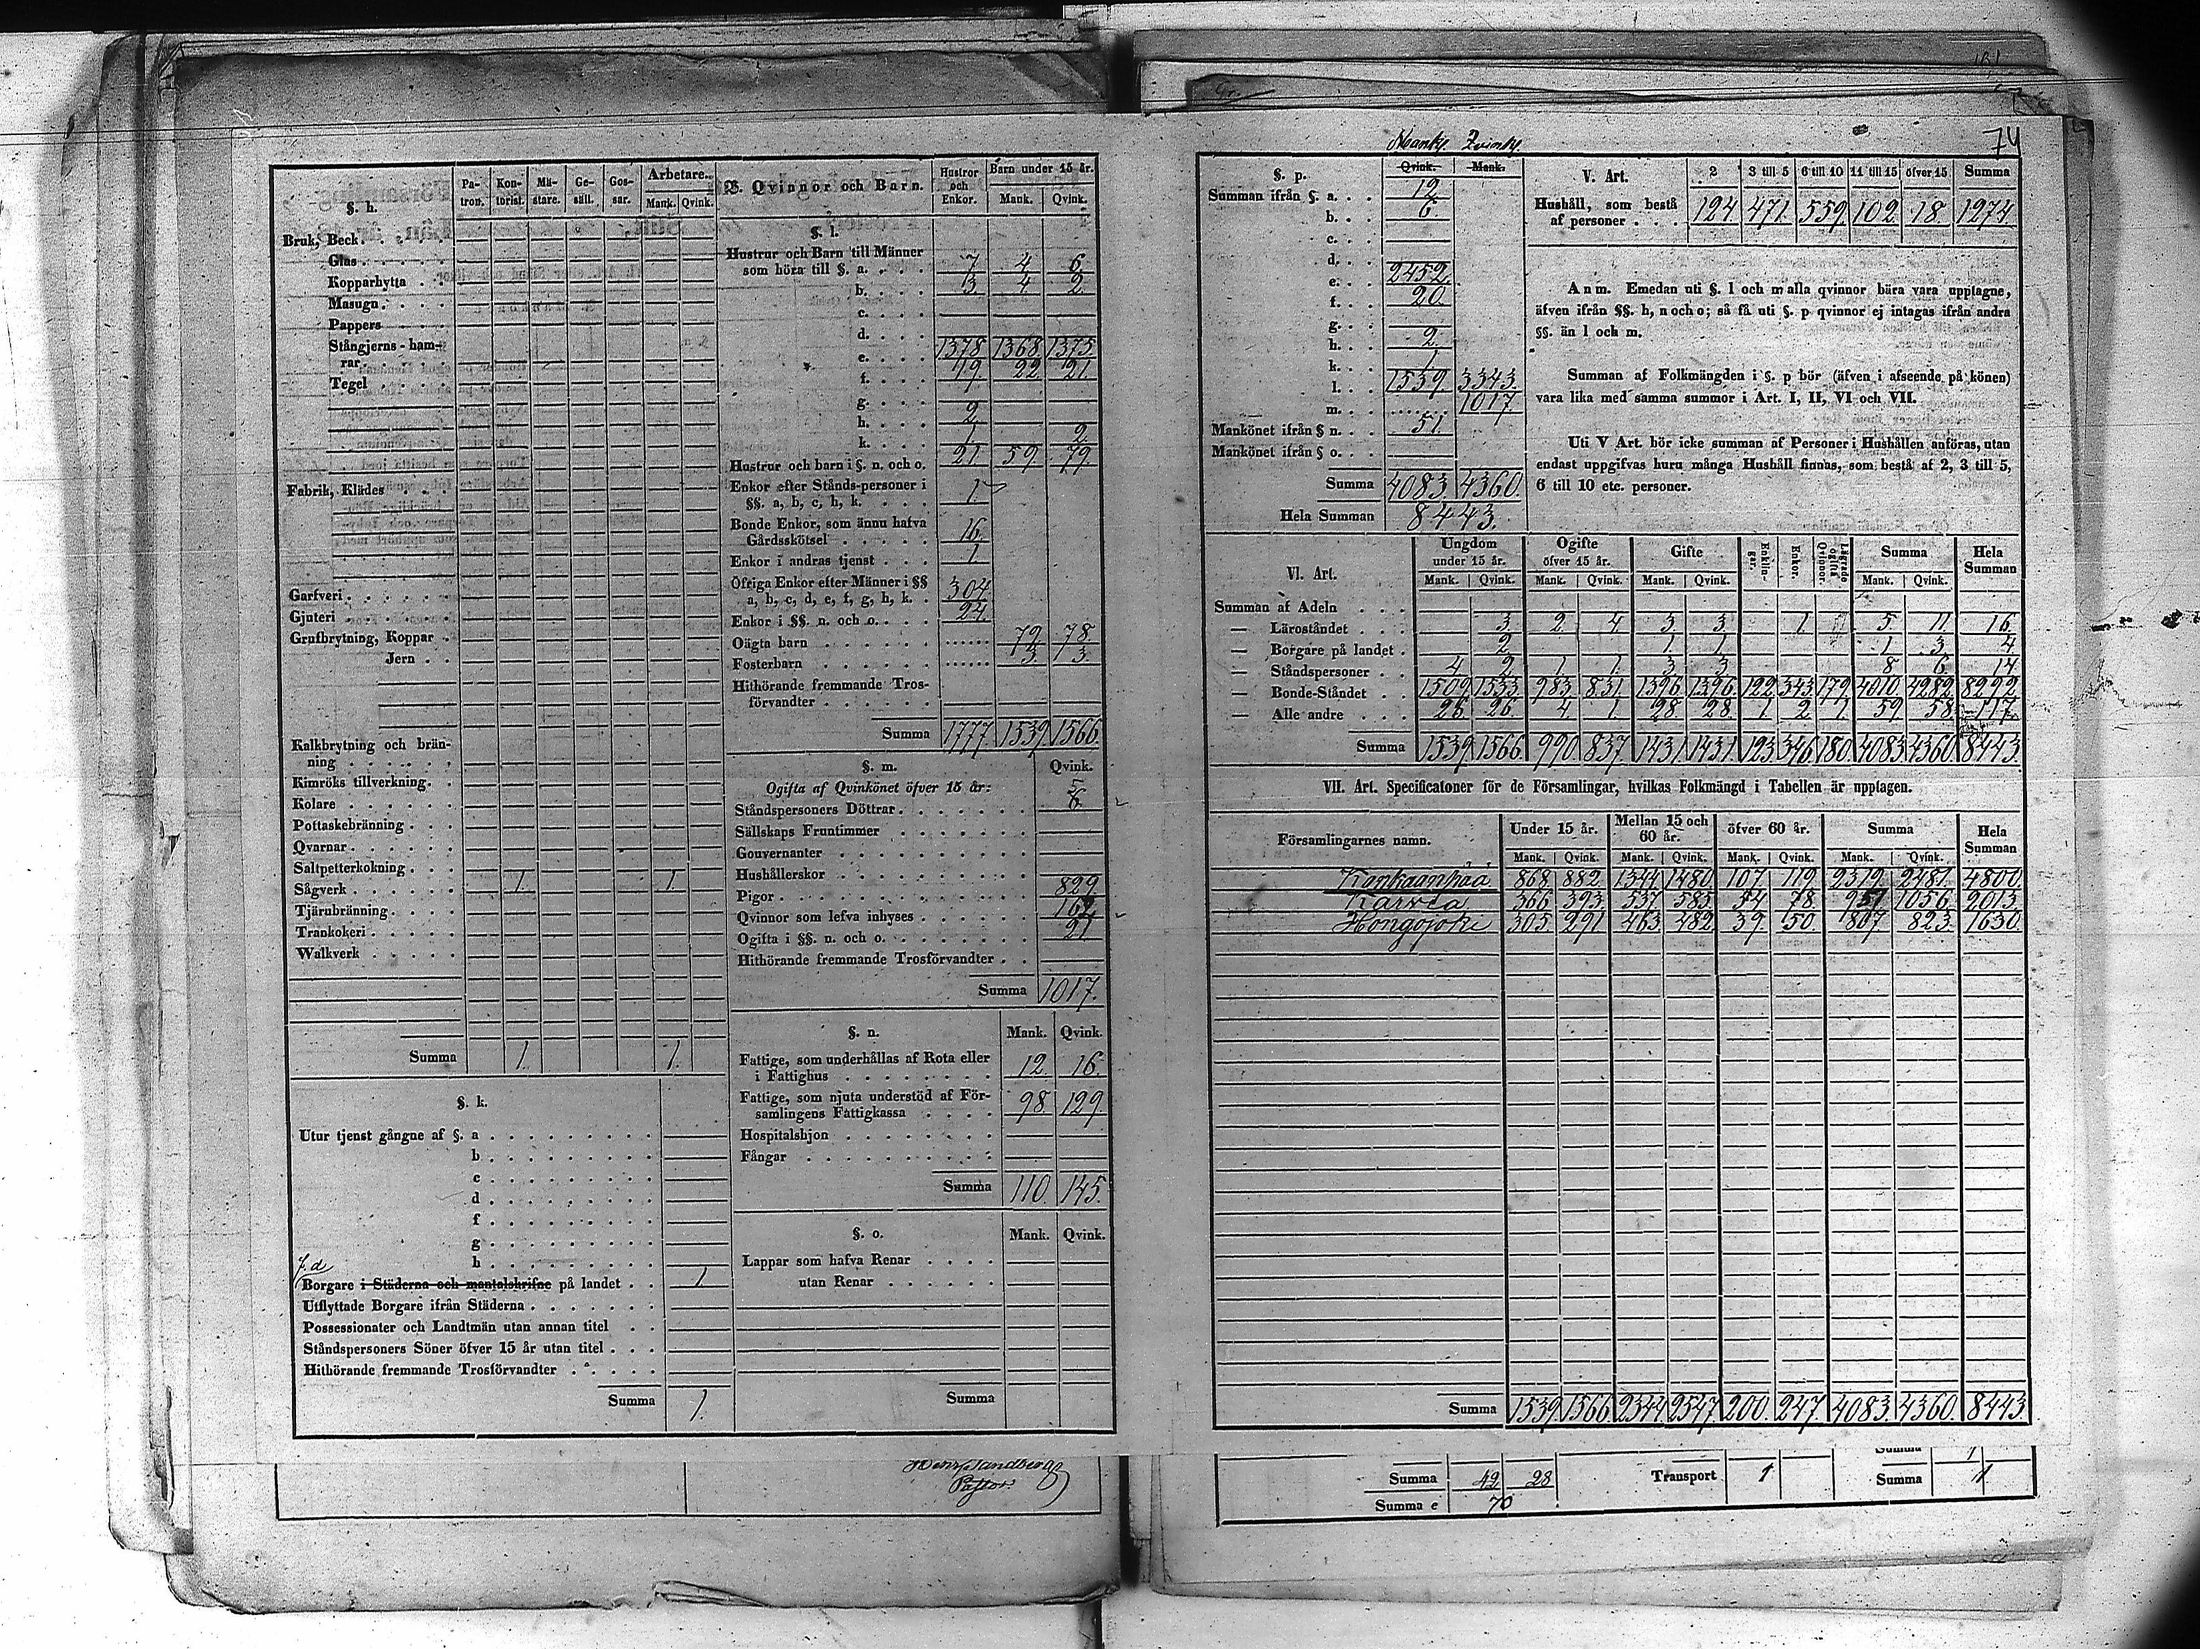 §. h. Pa-tron. Kon-torist. Mä-stare. Ge-säll. Gos-sar. Arbetare. Mank. Qvink.
Bruk, Beck
Glas
Kopparhytta
Masugn
Pappers
Stångjerns-ham-
rar
Tegel
Fabrik, Klädes
Garfveri
Gjuteri
Grufbrytning, Koppar
Jern
Kalkbrytning och brän-
ning
Kimröks tillverkning
Kolare
Pottaskebränning
Qvarnar
Saltpetterkokning
Sågverk 1. 1.
Tjärubränning
Trankokeri
Walkverk
Summa 1. 1.
§. k.
Utur tjenst gångne af §. a
b
c
d
f
g
h
Borgare i Städerna och mantalskrifne på landet 1
Utflyttade Borgare ifrån Städerna
Possessionater och Landtmän utan annan titel
Ståndspersoners Söner öfver 15 år utan titel
Hithörande fremmande Trosförvandter
Summa 1.
B. Qvinnor och Barn. Hustror och Enkor. Barn under 15 år. Mank. Qvink.
§. l.
Hustrur och Barn till Männer
som höra till §. a. 7 4 6
b. 3. 4. 2.
c.
d.
e. 1378 1368 1375.
f. 19. 22. 21.
g.
h. 2.
k. 1. 2.
Hustrur och barn i §. n. och o. 21. 59. 79.
Enkor efter Stånds-personer i
§§. a, b, c, h, k. 1.
Bonde Enkor, som ännu hafva
Gårdsskötsel 16.
Enkor i andras tjenst 1.
Öfriga Enkor efter Männer i §§
a, b, c, d, e, f, g, h, k. 304
Enkor i §§. n. och o. 24.
Oägta barn 79. 78.
Fosterbarn 3. 3.
Hithörande fremmande Tros-
förvandter
Summa 1777. 1539. 1566
§. m. Qvink.
Ogifta af Qvinkönet öfver 15 år:
Ståndspersoners Döttrar 6.
Sällskaps Fruntimmer
Gouvernanter
Hushållerskor
Pigor 829
Qvinnor som lefva inhyses
Ogifta i §§. n. och o. 21.
Hithörande fremmande Trosförvandter
Summa 1017.
§. n. Mank. Qvink.
Fattige, som underhållas af Rota eller
i Fattighus 12. 16.
Fattige, som njuta understöd af För-
samlingens Fattigkassa 98. 129.
Hospitalshjon
Fångar
Summa 110. 145.
§. o. Mank. Qvink.
Lappar som hafva Renar
utan Renar
Summa
Pastor
74
Mank. Qvink.
§. p. Qvink. Mank.
Summan ifrån §. a. 12
b. 6.
c.
d.
e. 2452.
f. 20.
g.
h. 2.
k. 1.
l. 1539. 3343.
m. 1017.
Mankönet ifrån § n. 51.
Mankönet ifrån § o.
Summa 4083. 4360.
Hela Summan 8443.
V. Art. 2 3 till 5 6 till 10 11 till 15 öfver 15 Summa
Hushåll, som bestå
af personer 124 471. 559. 102. 18. 1274
Anm. Emedan uti §. l och m alla qvinnor böra vara upptagne,
äfven ifrån §§. h, n och o; så få uti §. p qvinnor ej intagas ifrån andra
§§. än l och m.
Summan af Folkmängden i §. p bör (äfven i afseende på könen)
vara lika med samma summor i Art. I, II, VI och VII.
Uti V Art. bör icke summan af Personer i Hushållen anföras, utan
endast uppgifvas huru många Hushåll finnas, som bestå af 2, 3 till 5,
6 till 10 etc. personer.
VI. Art. Ungdom under 15 år. Ogifte öfver 15 år. Gifte Enklin-gar. Enkor. Lägrade ogifta Qvinnor. Summa Hela Summan
Mank. Qvink. Mank. Qvink. Mank. Qvink. Mank. Qvink.
Summan af Adeln
— Läroståndet 3. 2. 4. 3. 3. 1. 5 11 16.
— Borgare på landet 2. 1. 1. 1. 3. 4
— Ståndspersoner 4 2 1. 1. 3 3 8 6 14
— Bonde-Ståndet 1509. 1533. 983. 831. 1396. 1396. 122. 343. 179. 4010. 4282. 8292.
— Alle andre 26. 26. 4. 1. 28. 28. 1. 2. 1. 59. 58. 117.
Summa 1539. 1566. 990. 837. 1431. 1431. 123. 346. 180. 4083. 4360. 8443.
VII. Art. Specificationer för de Församlingar, hvilkas Folkmängd i Tabellen är upptagen.
Församlingarnes namn. Under 15 år. Mellan 15 och 60 år. öfver 60 år. Summa Hela Summan
Mank. Qvink. Mank. Qvink. Mank. Qvink. Mank. Qvink.
Kankaanpää 868 882 1344 1480 107 119 2319. 2481 4800.
Karvia 366 393 537 585 54 78 957 1056. 2013.
Hongojoki 305 291 463 482 39 50. 807. 823. 1630.
Summa 1539. 1566. 2344 2547 200. 247. 4083. 4360. 8443
Summa 1
Summa 42 28 Transport 1 Summa 1
Summa e 70